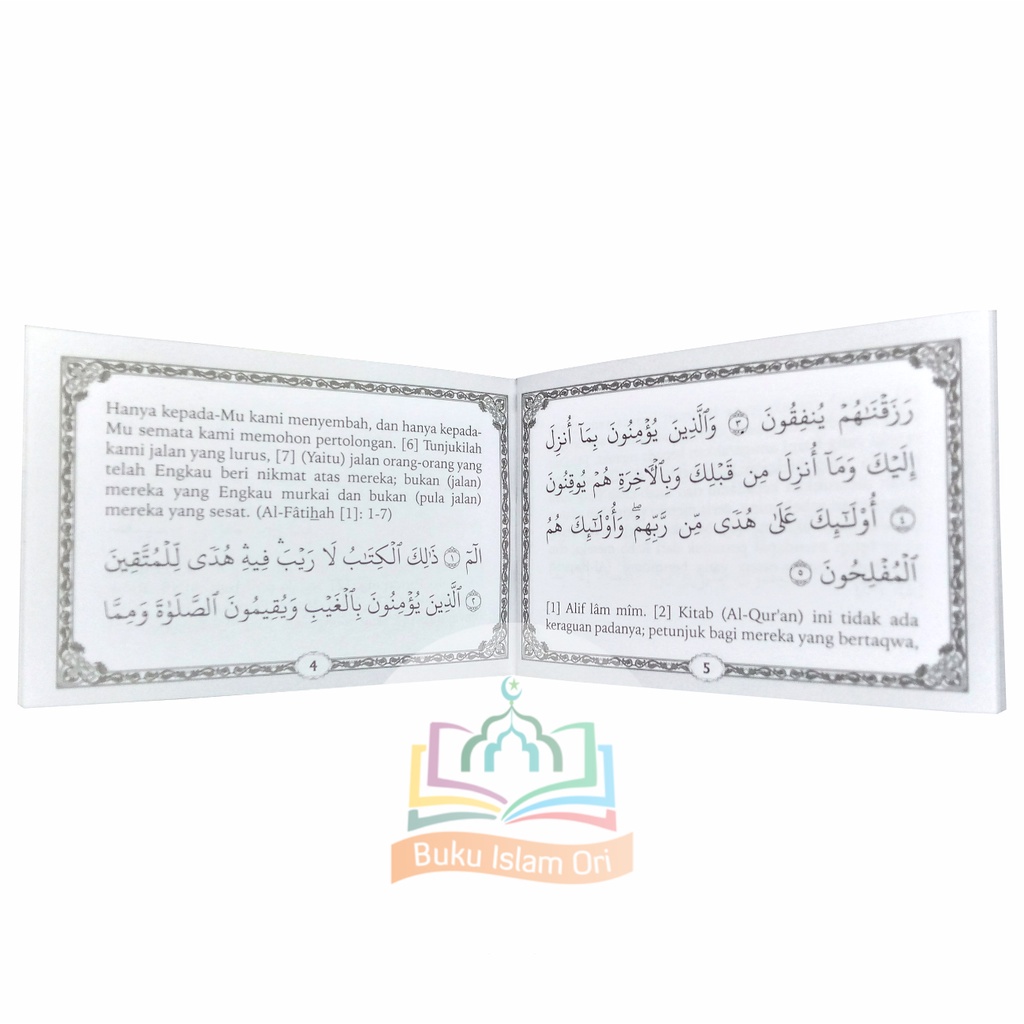 Hanya kepada-Mu kami menyembah, dan hanya kepada-
Mu semata kami memohon pertolongan. [6] Tunjukilah
kami jalan yang lurus, [7] (Yaitu) jalan orang-orang yang
telah Engkau beri nikmat atas mereka; bukan (jalan)
mereka yang Engkau murkai dan bukan (pula jalan)
mereka yang sesat. (Al-Fâtiẖah [1]: 1-7)
الٓمٓ ۝١ ذَٰلِكَ ٱلْكِتَٰبُ لَا رَيْبَ ۛ فِيهِ ۛ هُدًى لِّلْمُتَّقِينَ
۝٢ ٱلَّذِينَ يُؤْمِنُونَ بِٱلْغَيْبِ وَيُقِيمُونَ ٱلصَّلَوٰةَ وَمِمَّا
4
رَزَقْنَٰهُمْ يُنفِقُونَ ۝٣ وَٱلَّذِينَ يُؤْمِنُونَ بِمَآ أُنزِلَ
إِلَيْكَ وَمَآ أُنزِلَ مِن قَبْلِكَ وَبِٱلْأَخِرَةِ هُمْ يُوقِنُونَ
۝٤ أُو۟لَٰٓئِكَ عَلَىٰ هُدًى مِّن رَّبِّهِمْ ۖ وَأُو۟لَٰٓئِكَ هُمُ
ٱلْمُفْلِحُونَ ۝٥
[1] Alif lâm mîm. [2] Kitab (Al-Qur'an) ini tidak ada
keraguan padanya; petunjuk bagi mereka yang bertaqwa,
5
Buku Islam Ori